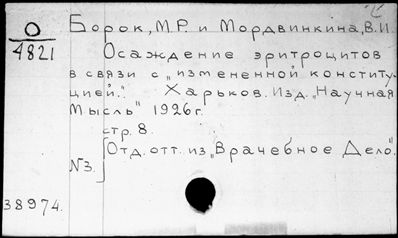 О
4821
Борок, М.Р. и Мордвинкина, В.И.
Осаждение эритроцитов
в связи с „измененной конститу-
цией." Харьков. Изд. „Научная
Мысль" 1926 г.
стр. 8.
Отд. отт. из „Врачебное Дело".
№3.
38974.